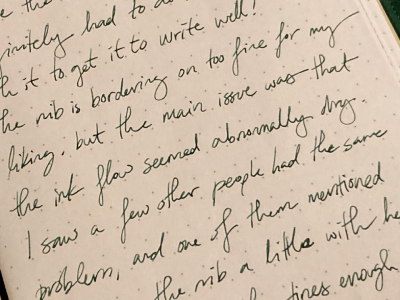 the
finitely had to do
it to get it to write well!
the nib is bordering on too fine for my
liking, but the main issue was that
the ink flow seemed abnormally dry.
I saw a few other people had the same
problem, and one of them mentioned
the nib a little with
times enough